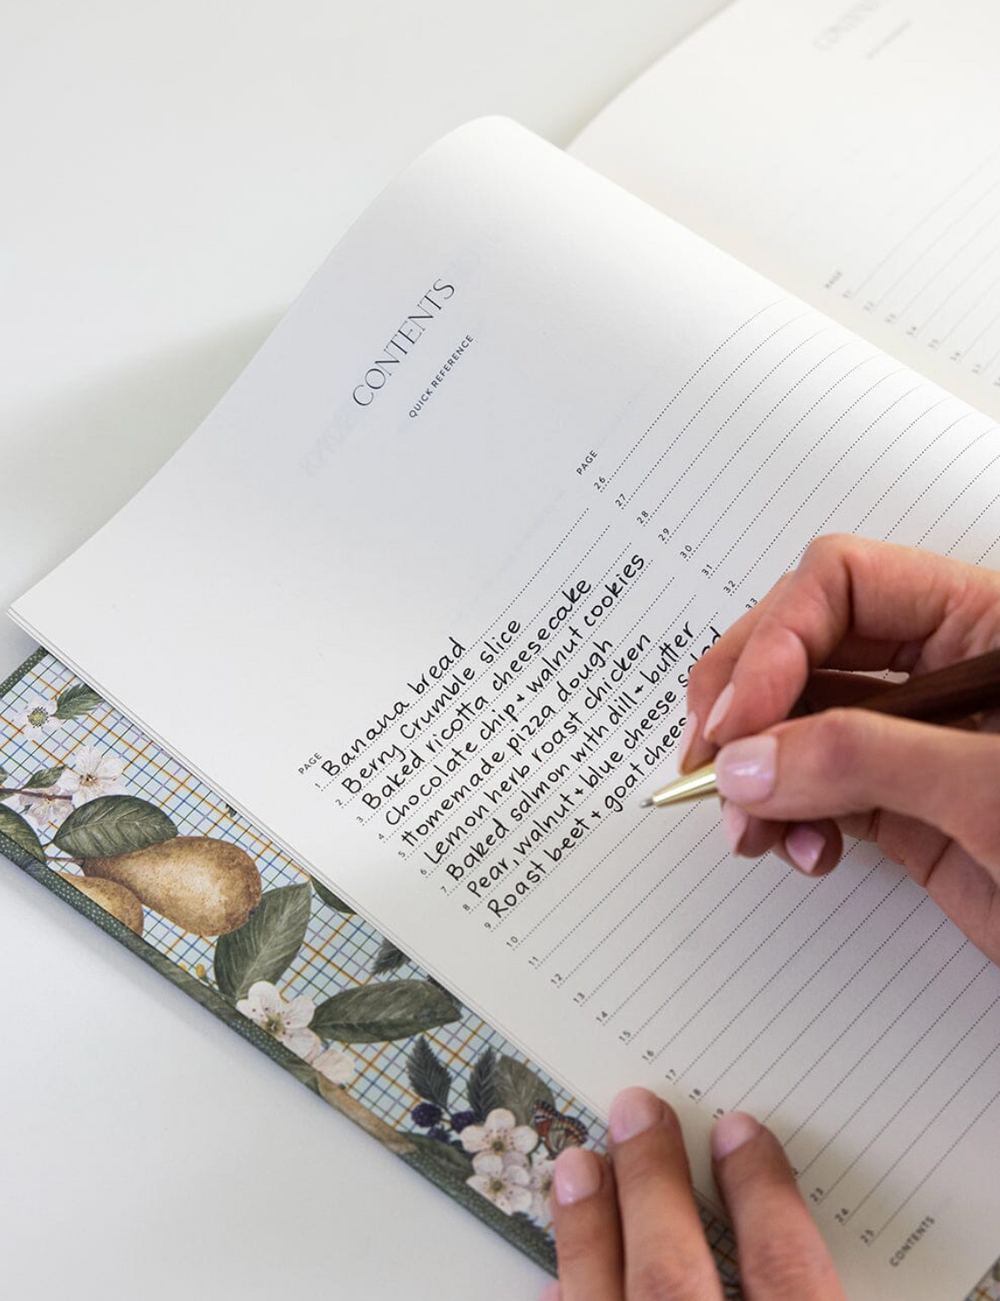 CONTENTS
QUICK REFERENCE
PAGE
1 Banana bread
2 Berry Crumble slice
3 Baked ricotta cheesecake
4 Chocolate chip + walnut cookies
5 Homemade pizza dough
6 Lemon herb roast chicken
7 Baked salmon with dill + butter
8 Pear, walnut + blue cheese salad
9 Roast beet + goat chees
10
11
12
13
14
15
16
17
18
19
23
24
25
PAGE
26
27
28
29
30
31
32
33
CONTENTS
CONTENTS
PAGE